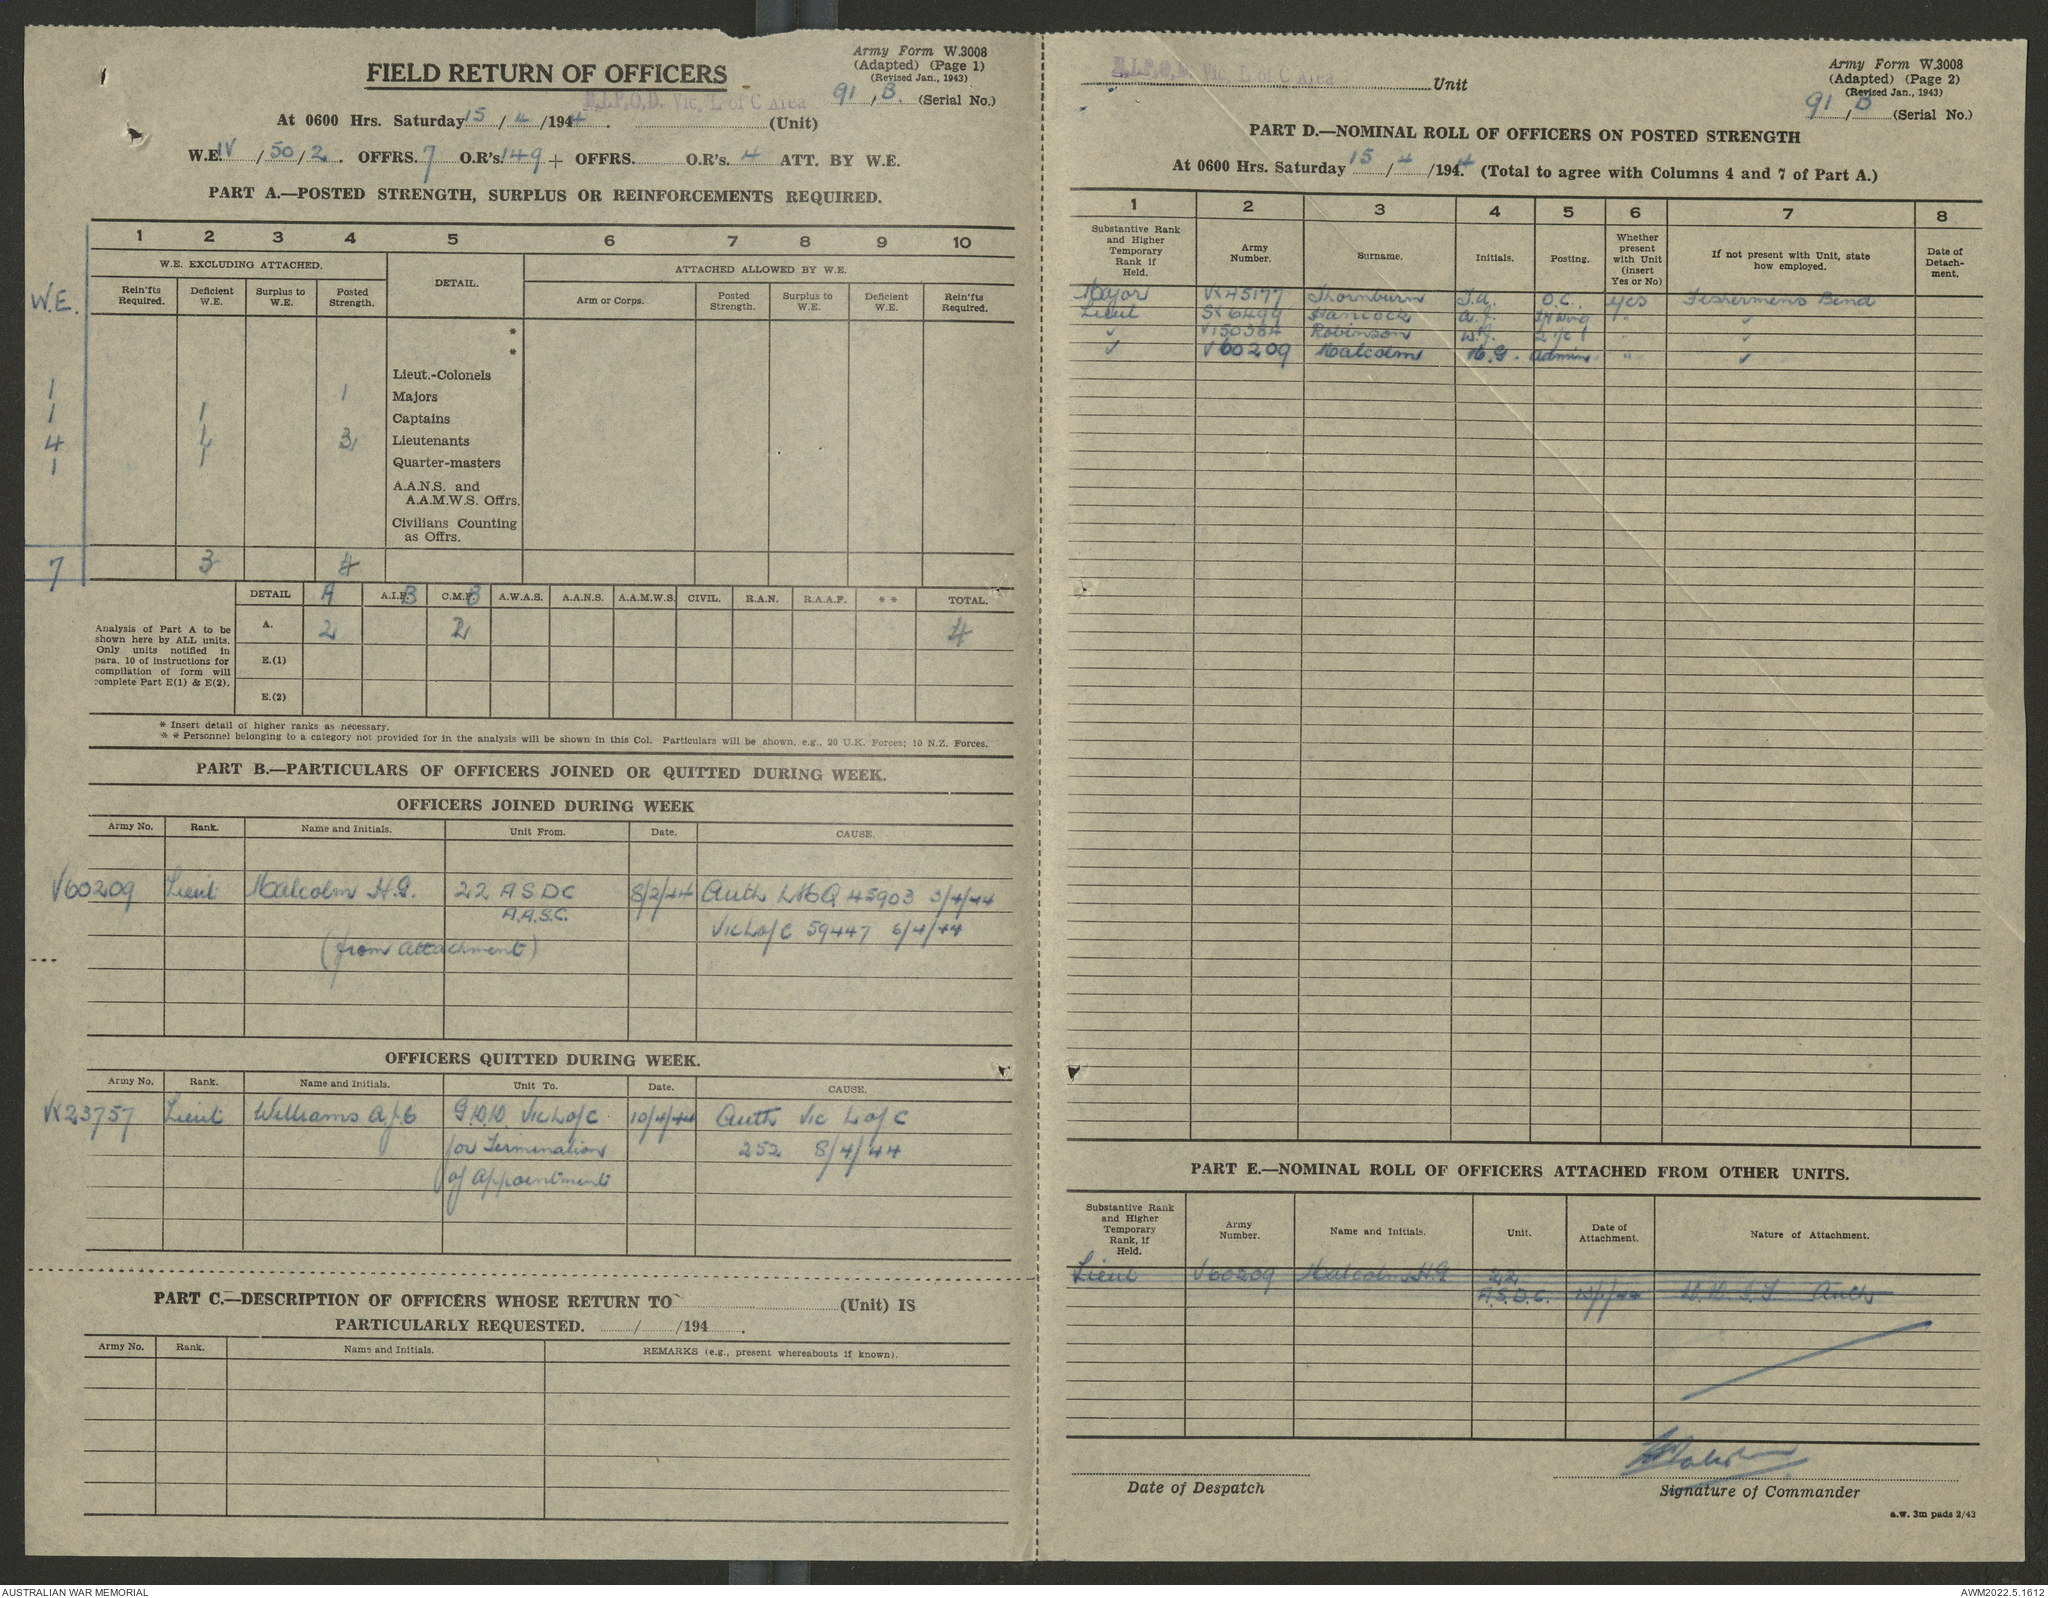 Army Form W.3008
(Adapted) (Page 1)
(Revised Jan., 1943)
FIELD RETURN OF OFFICERS
Vic. L of C Area
91 / B. (Serial No.)
At 0600 Hrs. Saturday 15 / 4 / 1944. (Unit)
W.E. IV / 50 / 2. OFFRS. 7 O.R's. 149 + OFFRS. O.R's. 4 ATT. BY W.E.
PART A.—POSTED STRENGTH, SURPLUS OR REINFORCEMENTS REQUIRED.
1 2 3 4 5 6 7 8 9 10
W.E. EXCLUDING ATTACHED.
DETAIL.
ATTACHED ALLOWED BY W.E.
W.E.
Rein'fts Required.
Deficient W.E.
Surplus to W.E.
Posted Strength.
Arm or Corps.
Posted Strength.
Surplus to W.E.
Deficient W.E.
Rein'fts Required.
*
*
Lieut.-Colonels
1 1 Majors
1 1 Captains
4 1 3 Lieutenants
1 1 Quarter-masters
A.A.N.S. and
A.A.M.W.S. Offrs.
Civilians Counting
as Offrs.
7 3 4
DETAIL A A.I.F. B C.M.F. B A.W.A.S. A.A.N.S. A.A.M.W.S. CIVIL. R.A.N. R.A.A.F. * * TOTAL.
Analysis of Part A to be
shown here by ALL units.
Only units notified in
para. 10 of instructions for
compilation of form will
complete Part E(1) & E(2).
A. 2 2 4
E.(1)
E.(2)
* Insert detail of higher ranks as necessary.
* * Personnel belonging to a category not provided for in the analysis will be shown in this Col. Particulars will be shown, e.g., 20 U.K. Forces; 10 N.Z. Forces.
PART B.—PARTICULARS OF OFFICERS JOINED OR QUITTED DURING WEEK.
OFFICERS JOINED DURING WEEK
Army No. Rank. Name and Initials. Unit From. Date. CAUSE.
V60209 Lieut Malcolm H.G. 22 A S D C 8/2/44 Auth LHQ 45903 3/4/44
A.A.S.C.
Vic L of C 59447 6/4/44
(from attachment)
OFFICERS QUITTED DURING WEEK.
Army No. Rank. Name and Initials. Unit To. Date. CAUSE.
VX23757 Lieut Williams A.J.G G.D.D. Vic L of C 10/4/44 Auth Vic L of C
for Termination 252 8/4/44
of Appointment
PART C.—DESCRIPTION OF OFFICERS WHOSE RETURN TO (Unit) IS
PARTICULARLY REQUESTED. / /194 .
Army No. Rank. Name and Initials. REMARKS (e.g., present whereabouts if known).
Vic. L of C Area Unit
Army Form W.3008
(Adapted) (Page 2)
(Revised Jan., 1943)
91 / B (Serial No.)
PART D.—NOMINAL ROLL OF OFFICERS ON POSTED STRENGTH
At 0600 Hrs. Saturday 15 / 4 / 1944. (Total to agree with Columns 4 and 7 of Part A.)
1 2 3 4 5 6 7 8
Substantive Rank
and Higher
Temporary
Rank if
Held.
Army
Number.
Surname.
Initials.
Posting.
Whether
present
with Unit
(insert
Yes or No)
If not present with Unit, state
how employed.
Date of
Detach-
ment.
Major VX45177 Thornburn J.A. O.C. Yes Fishermens Bend
Lieut SX6499 Hancock A.J. "
V150384 Robinson W.J. "
V60209 Malcolm H.G. Admin "
PART E.—NOMINAL ROLL OF OFFICERS ATTACHED FROM OTHER UNITS.
Substantive Rank
and Higher
Temporary
Rank, if
Held.
Army
Number.
Name and Initials.
Unit.
Date of
Attachment.
Nature of Attachment.
Lieut V60209 Malcolm H.G 22
A.S.D.C. Auth
Date of Despatch
Signature of Commander
a.w. 3m pads 2/43
AUSTRALIAN WAR MEMORIAL
AWM2022.5.1612